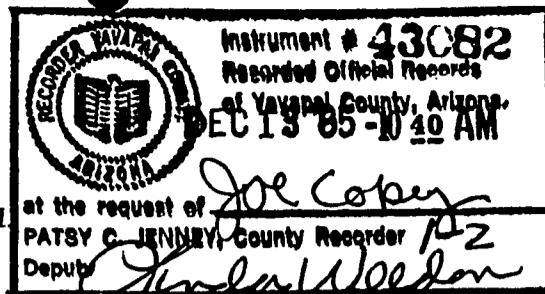 RECORDER YAVAPAI COUNTY
ARIZONA
Instrument # 43082
Recorded Official Records
of Yavapai County, Arizona,
DEC 13 85 -10 40 AM
at the request of Joe Copey
PATSY C. JENNEY, County Recorder
Deputy Linda Weedon